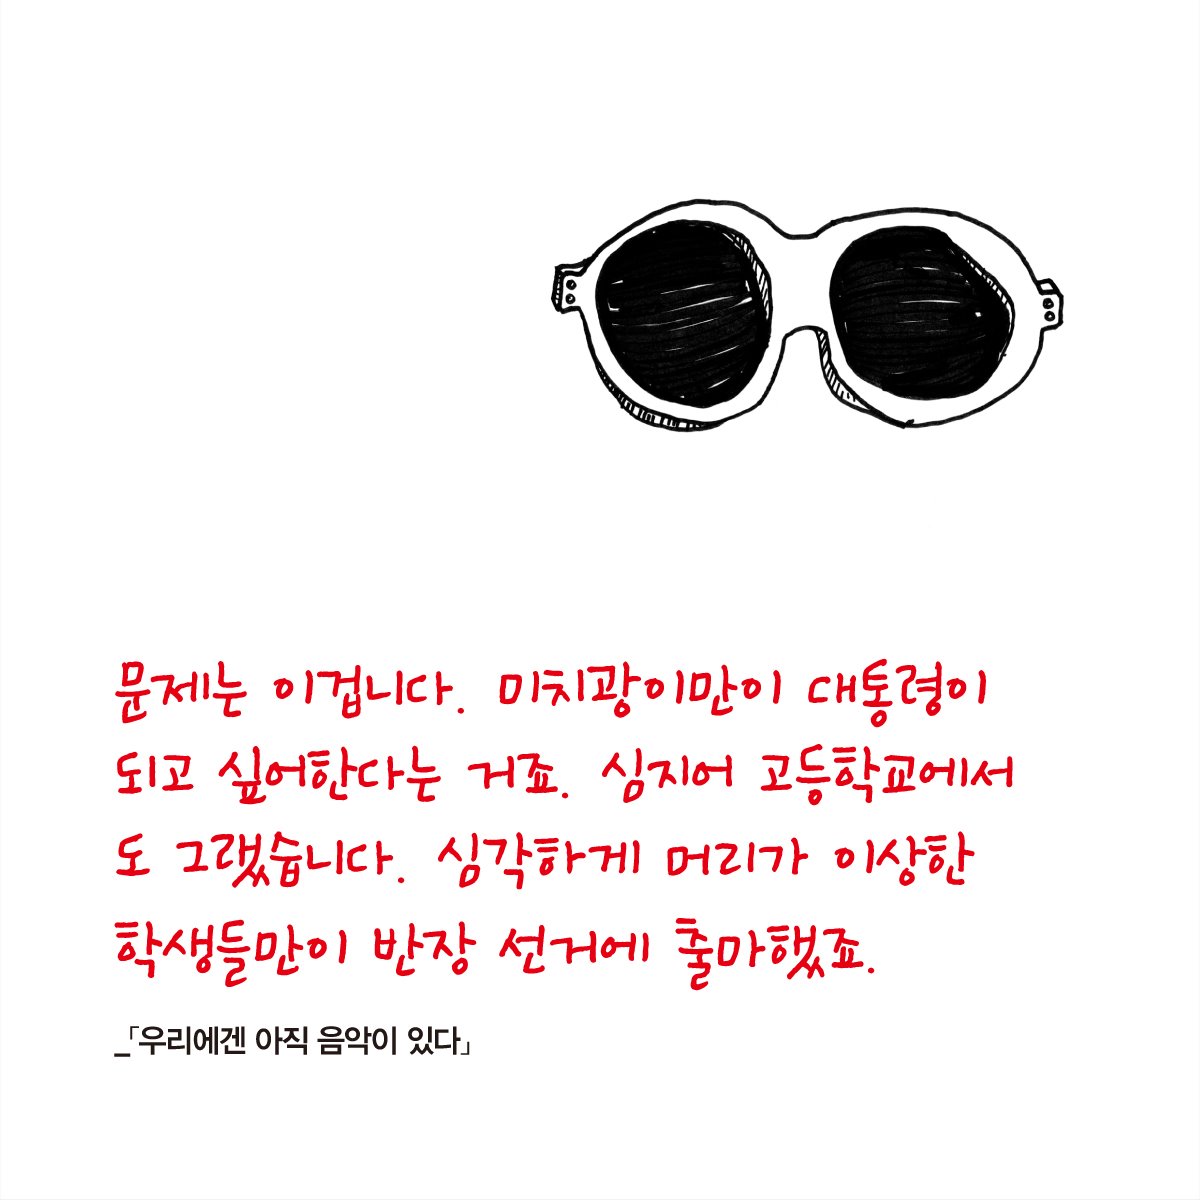 문제는 이겁니다. 미치광이만이 대통령이
되고 싶어한다는 거죠. 심지어 고등학교에서
도 그랬습니다. 심각하게 머리가 이상한
학생들만이 반장 선거에 출마했죠.
_「우리에겐 아직 음악이 있다」